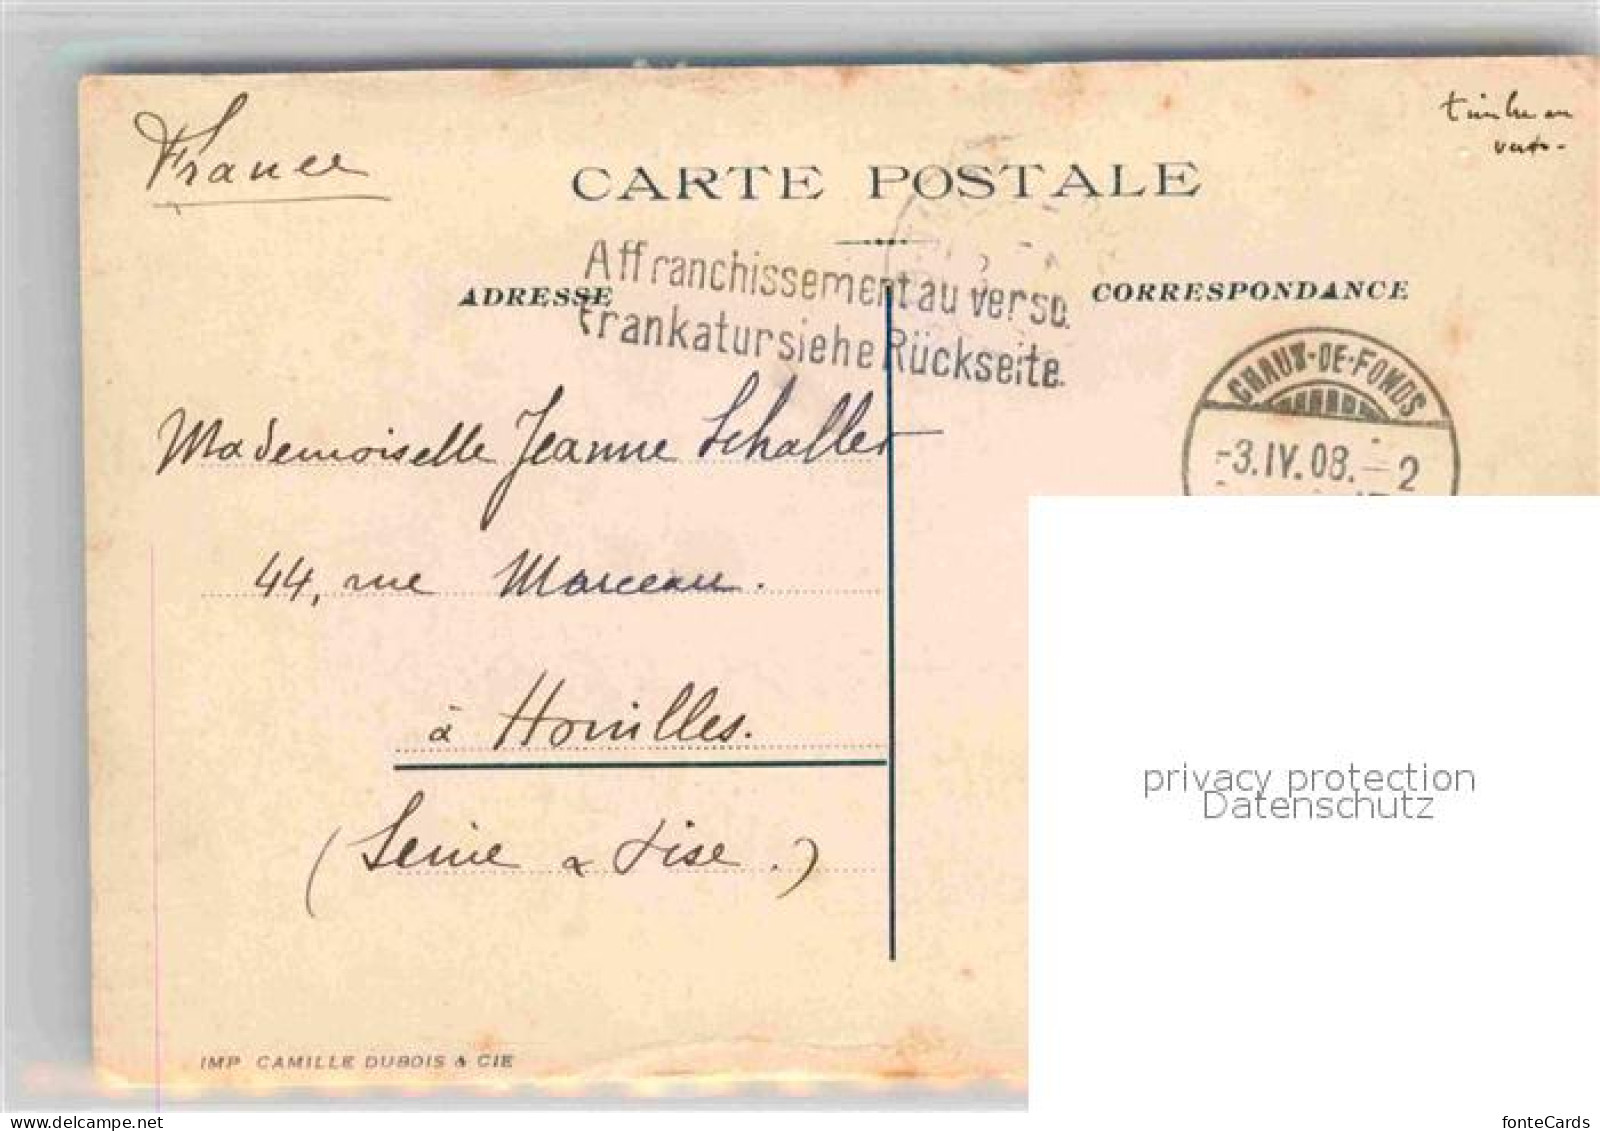 France
timbre au
verso -
CARTE POSTALE
Affranchissement au verso.
Frankatur siehe Rückseite.
ADRESSE
CORRESPONDANCE
CHAUX-DE-FONDS
-3.IV.08.-2
Mademoiselle Jeanne Schaller
44, rue Marceau.
à Houilles.
(Seine & Oise.)
privacy protection
Datenschutz
IMP CAMILLE DUBOIS & CIE
delcampe.net
fonteCards